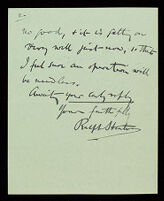 2
no good, & it is getting on
very well just now, so that
I feel sure an operation will
be needless.
Awaiting your early reply
Yours faithfully
Ralph